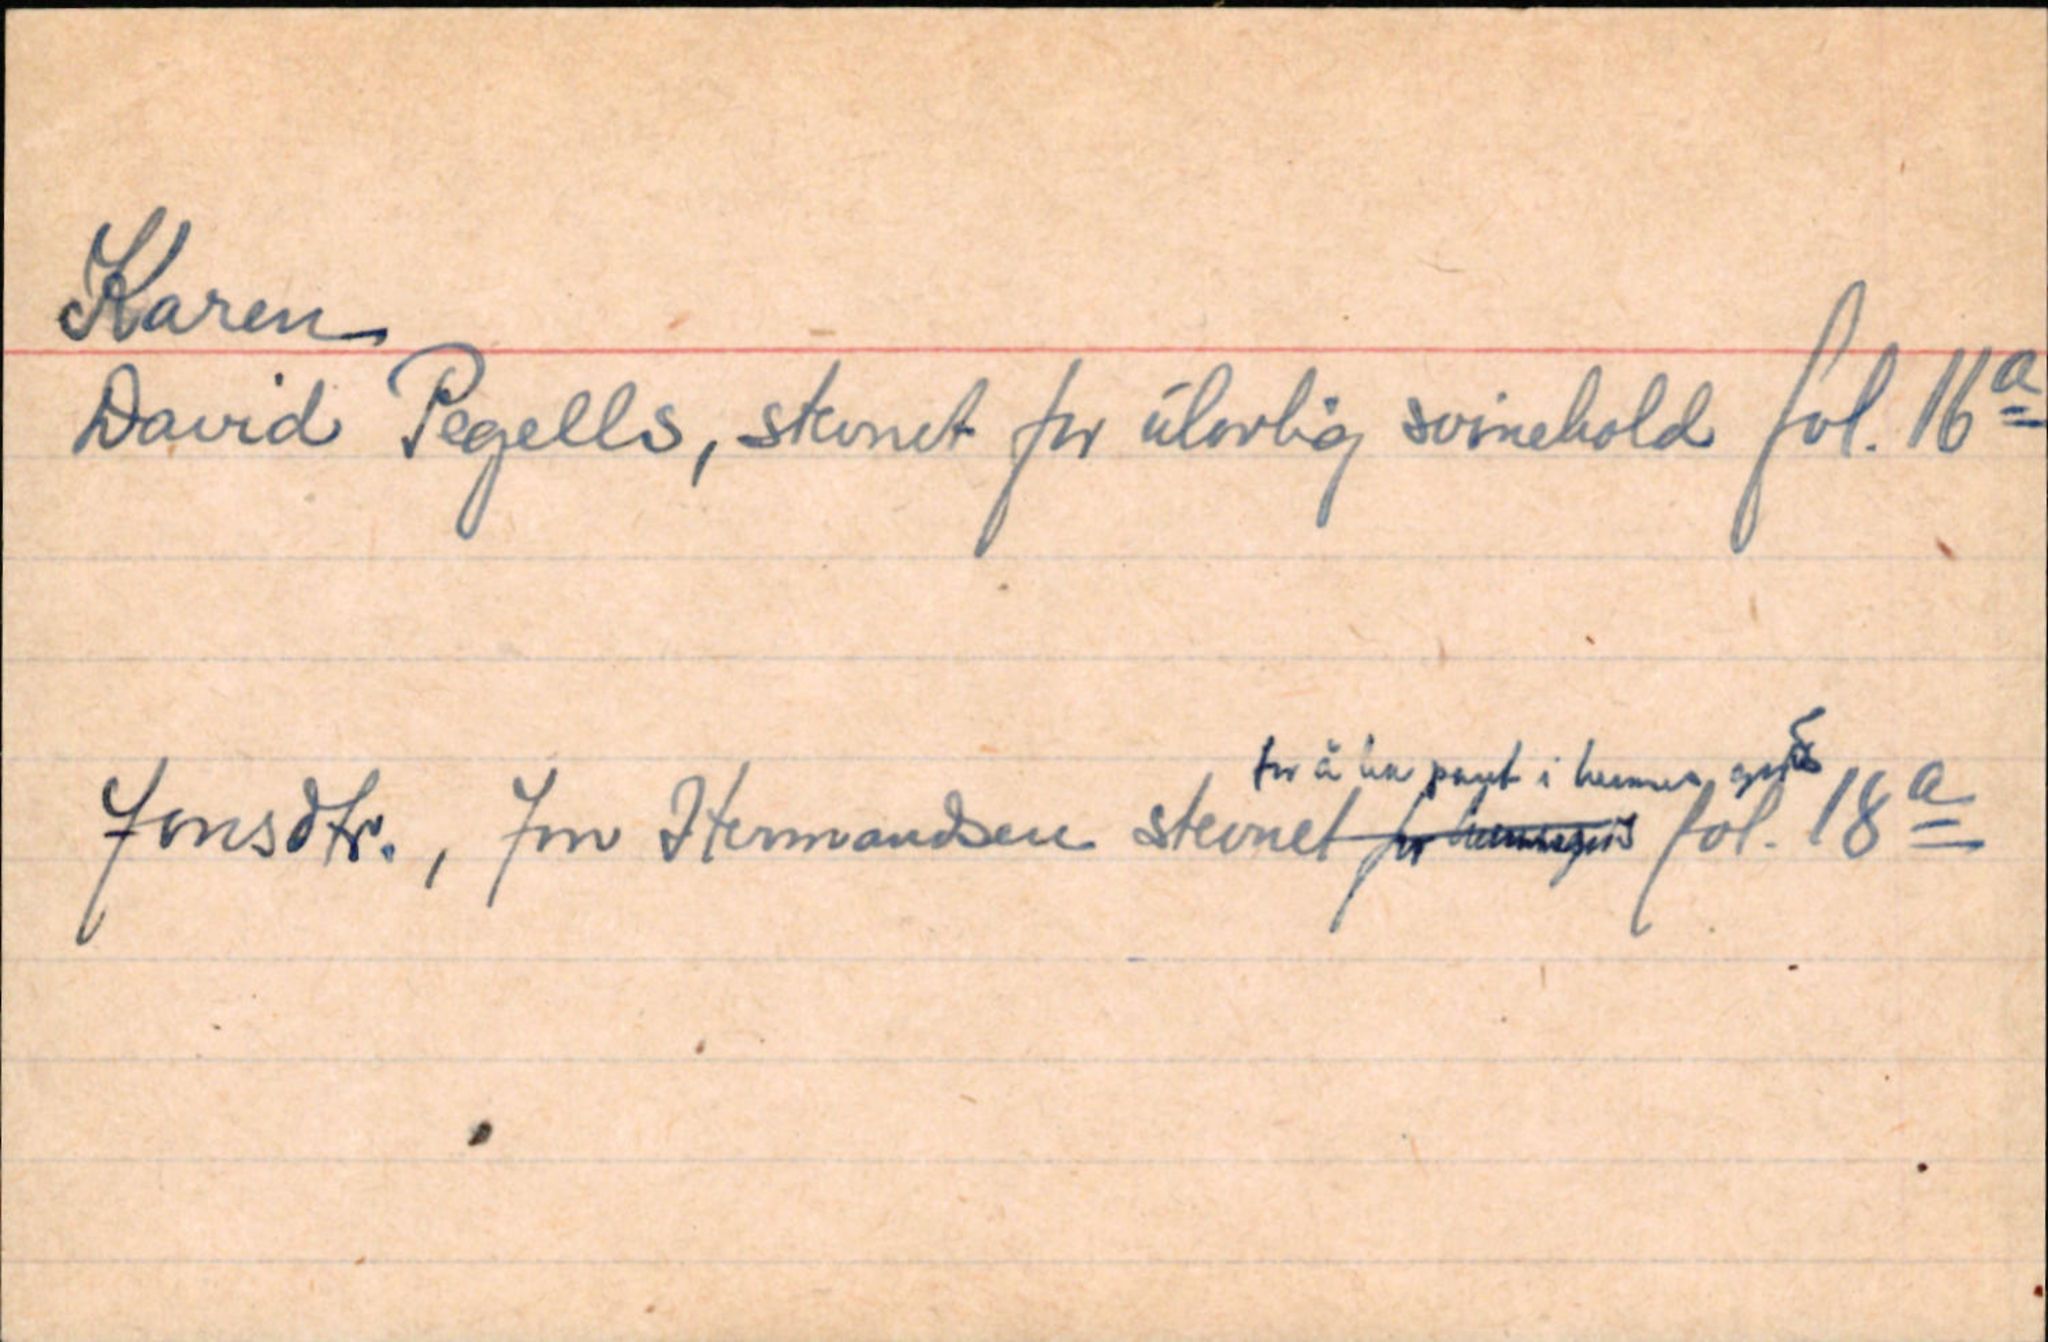 Karen
David Pegells, stevnet for ulovlig svinehold fol. 16a
for å ha pant i hennes gods
Jonsdtr., Jon Hermandsen stevnet for fol. 18a